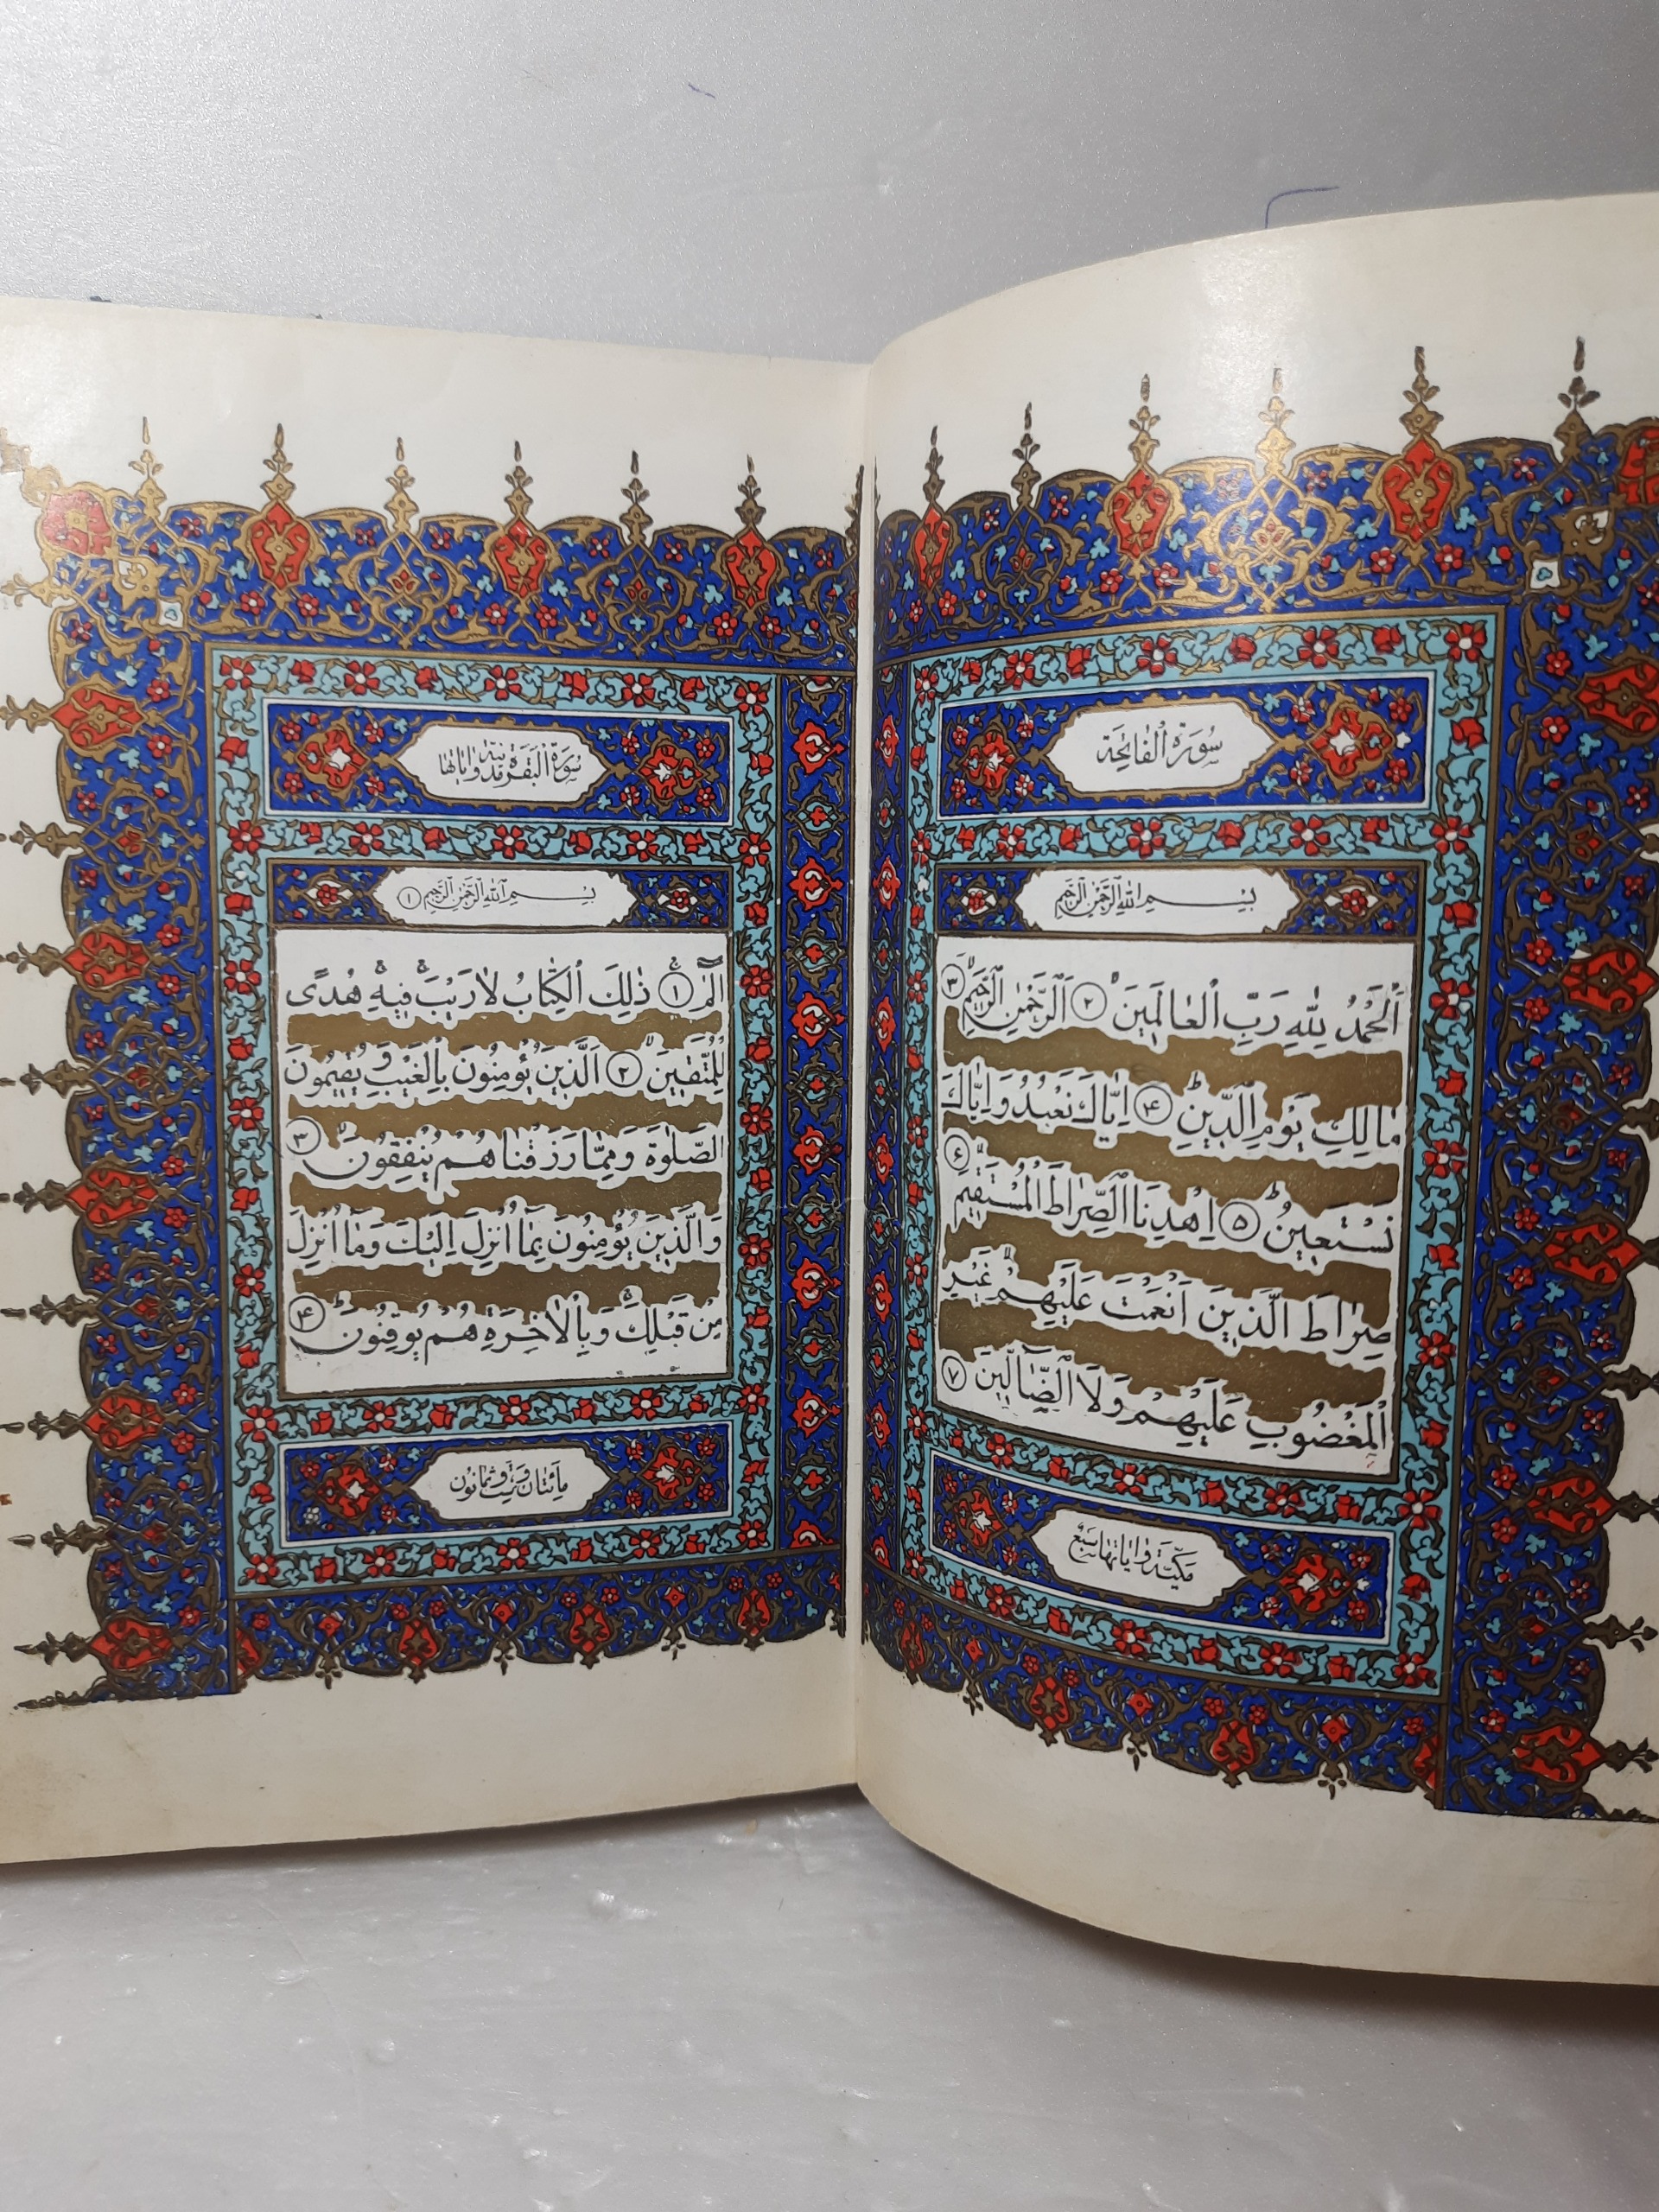 سُورَةُ الْفَاتِحَةِ
بِسْمِ اللهِ الرَّحْمٰنِ الرَّحِيمِ
اَلْحَمْدُ لِلّٰهِ رَبِّ الْعَالَمِينَ ۙ ٢ اَلرَّحْمٰنِ الرَّحِيمِ ۙ ٣
مَالِكِ يَوْمِ الدِّينِ ۴ اِيَّاكَ نَعْبُدُ وَاِيَّاكَ
نَسْتَعِينُ ٥ اِهْدِنَا الصِّرَاطَ الْمُسْتَقِيمَ ۶
صِرَاطَ الَّذِينَ اَنْعَمْتَ عَلَيْهِمْ غَيْرِ
الْمَغْضُوبِ عَلَيْهِمْ وَلَا الضَّٓالِّينَ ٧
مَكِّيَّةٌ وَاٰيَاتُهَا سَبْعٌ
سُورَةُ الْبَقَرَةِ مَدَنِيَّةٌ وَاٰيَاتُهَا
بِسْمِ اللهِ الرَّحْمٰنِ الرَّحِيمِ ١
الٓمٓ ١ ذٰلِكَ الْكِتَابُ لَا رَيْبَ فِيهِ هُدًى
لِلْمُتَّقِينَ ۙ ٢ اَلَّذِينَ يُؤْمِنُونَ بِالْغَيْبِ وَيُقِيمُونَ
الصَّلٰوةَ وَمِمَّا رَزَقْنَاهُمْ يُنْفِقُونَ ۙ ٣
وَالَّذِينَ يُؤْمِنُونَ بِمَٓا اُنْزِلَ اِلَيْكَ وَمَٓا اُنْزِلَ
مِنْ قَبْلِكَ وَبِالْاٰخِرَةِ هُمْ يُوقِنُونَ ۴
مِائَتَانِ وَسِتٌّ وَثَمَانُونَ